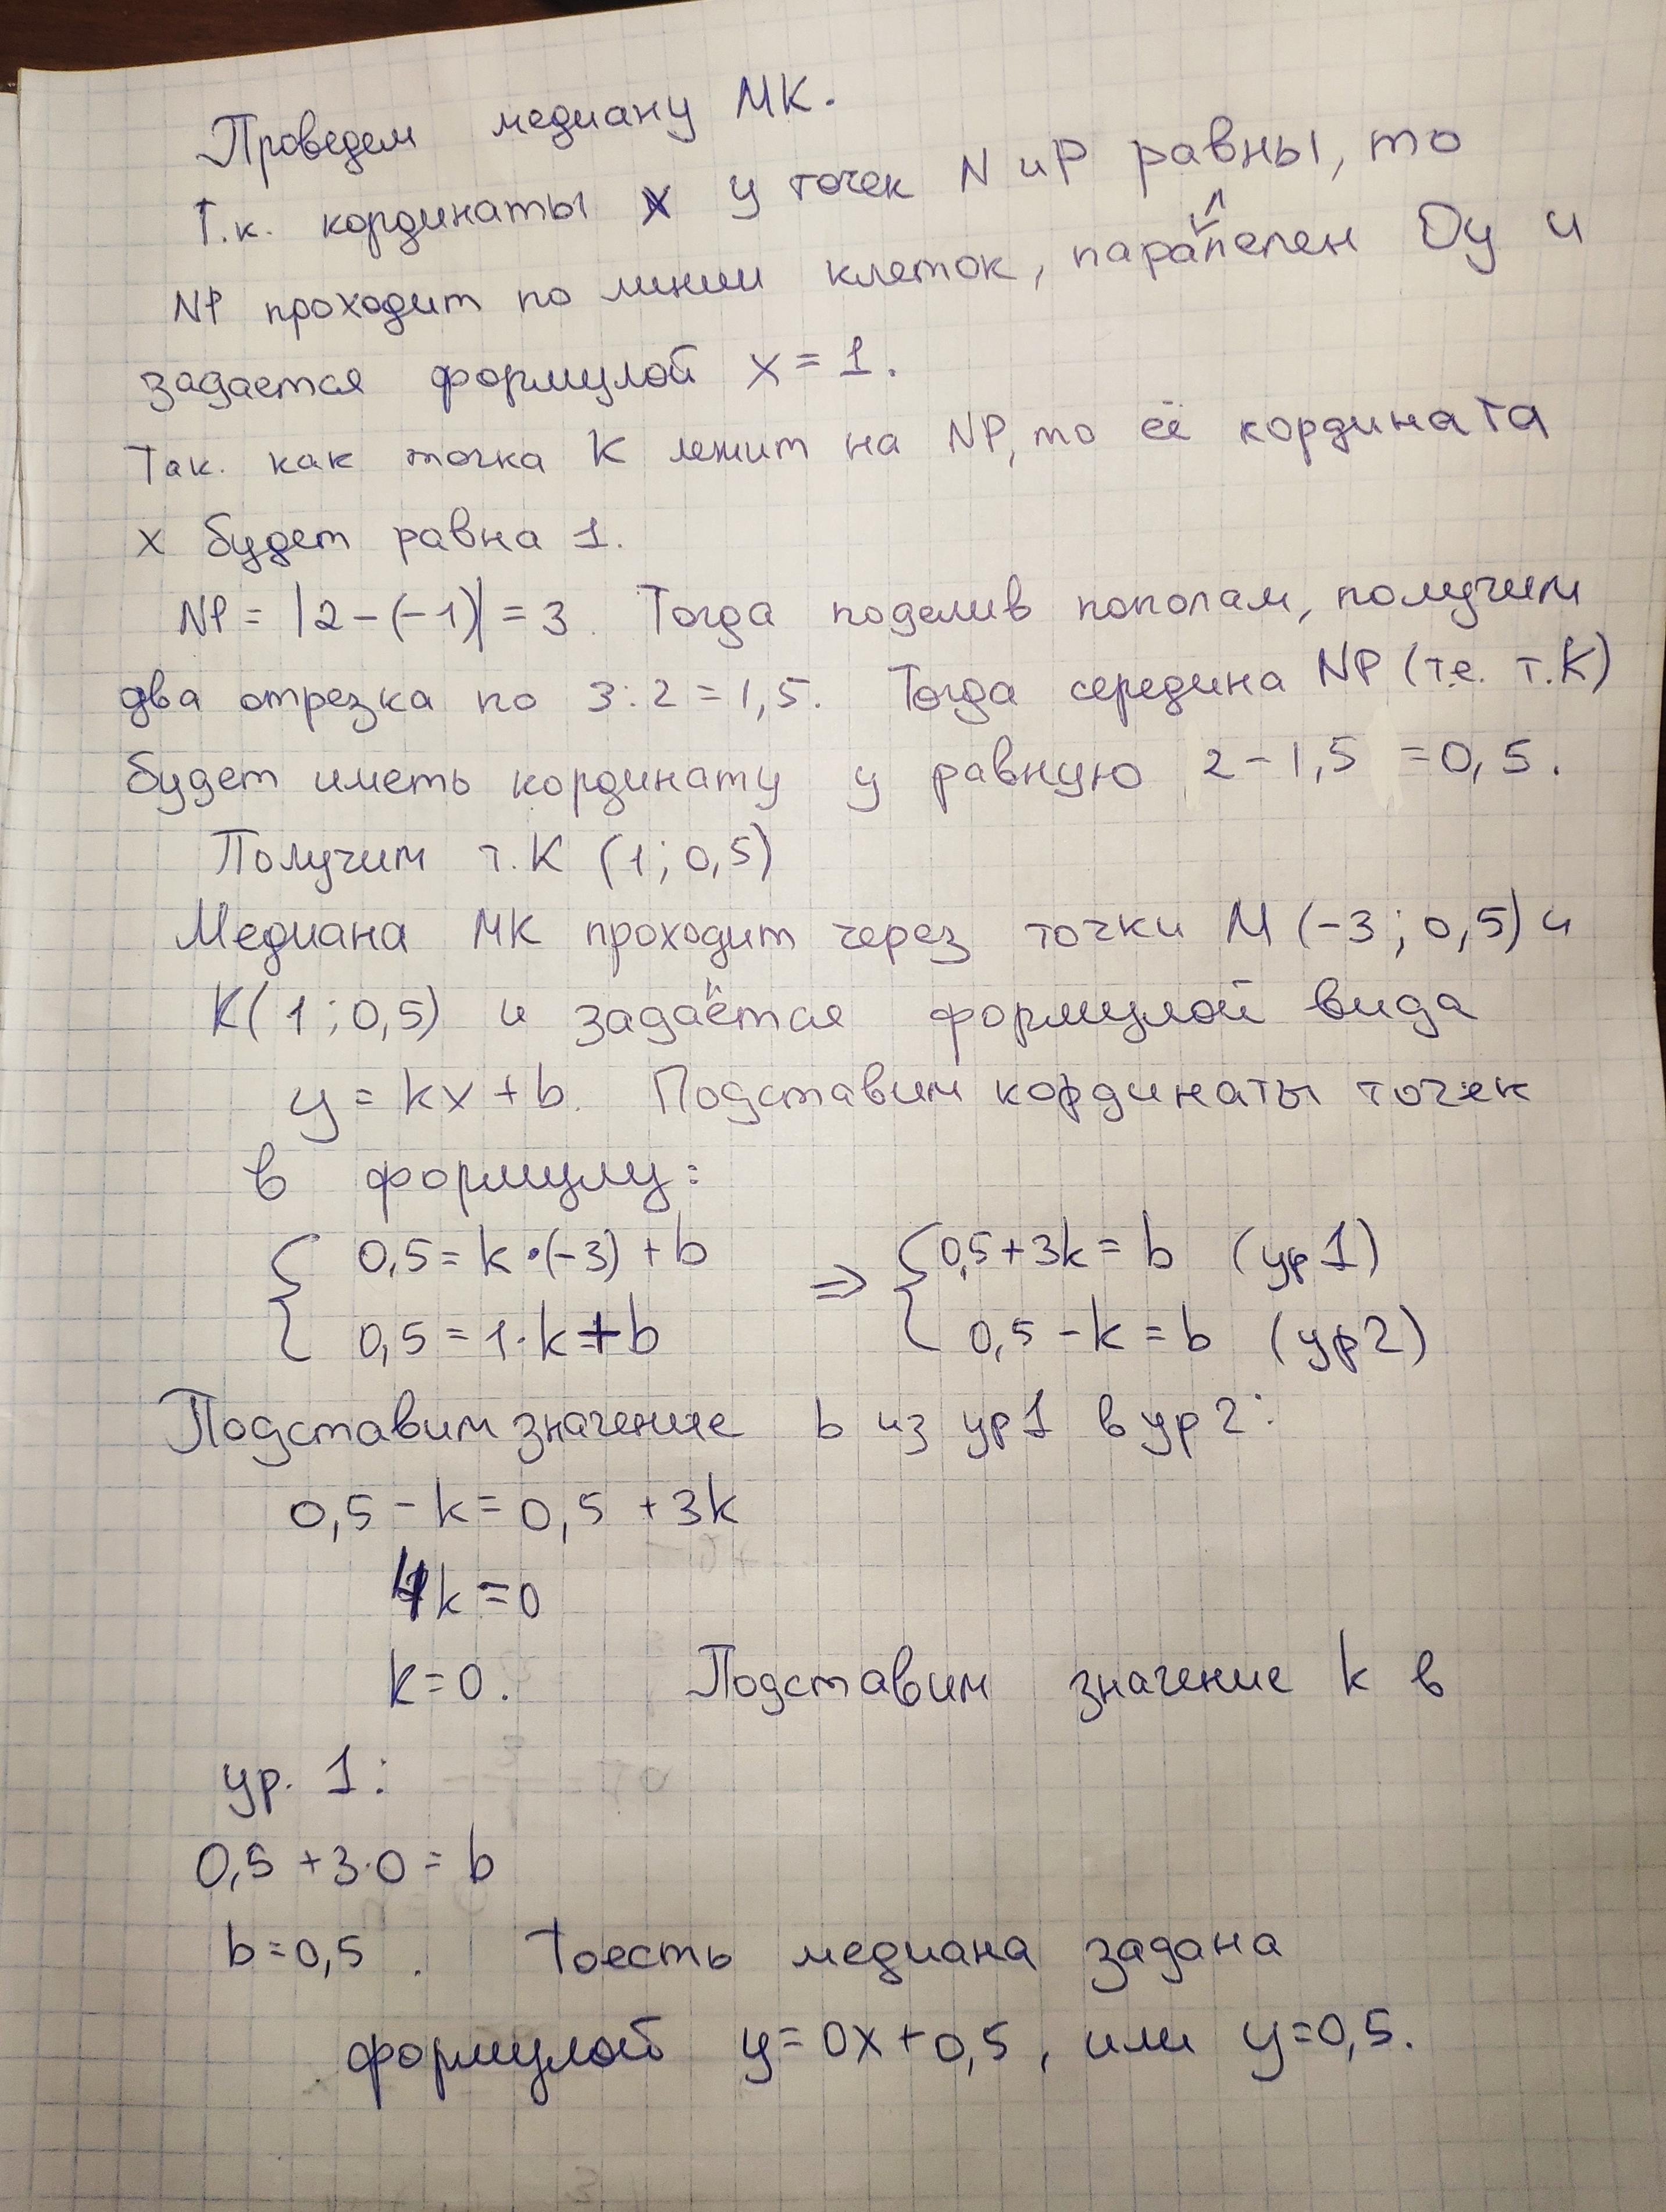 Проведем медиану МК.
Т.к. кординаты x у точек N и P равны, то
NP проходит по линии клеток, паралелен Оу и
задается формулой x = 1.
Так. как точка К лежит на NP, то её кордината
x будет равна 1.
NP = |2 - (-1)| = 3. Тогда поделив пополам, получим
два отрезка по 3:2 = 1,5. Тогда середина NP (т.е. т.К)
будет иметь кординату y равную 2 - 1,5 = 0,5.
Получим т. К (1; 0,5)
Медиана МК проходит через точки М (-3; 0,5) и
К(1; 0,5) и задаётся формулой вида
y = kx + b. Подставим кординаты точек
в формулу:
{ 0,5 = k·(-3) + b => { 0,5 + 3k = b (ур1)
0,5 = 1·k + b 0,5 - k = b (ур2)
Подставим значение b из ур1 в ур2:
0,5 - k = 0,5 + 3k
4k = 0
k = 0. Подставим значение k в
ур. 1:
0,5 + 3·0 = b
b = 0,5. Тоесть медиана задана
формулой y = 0x + 0,5, или y = 0,5.